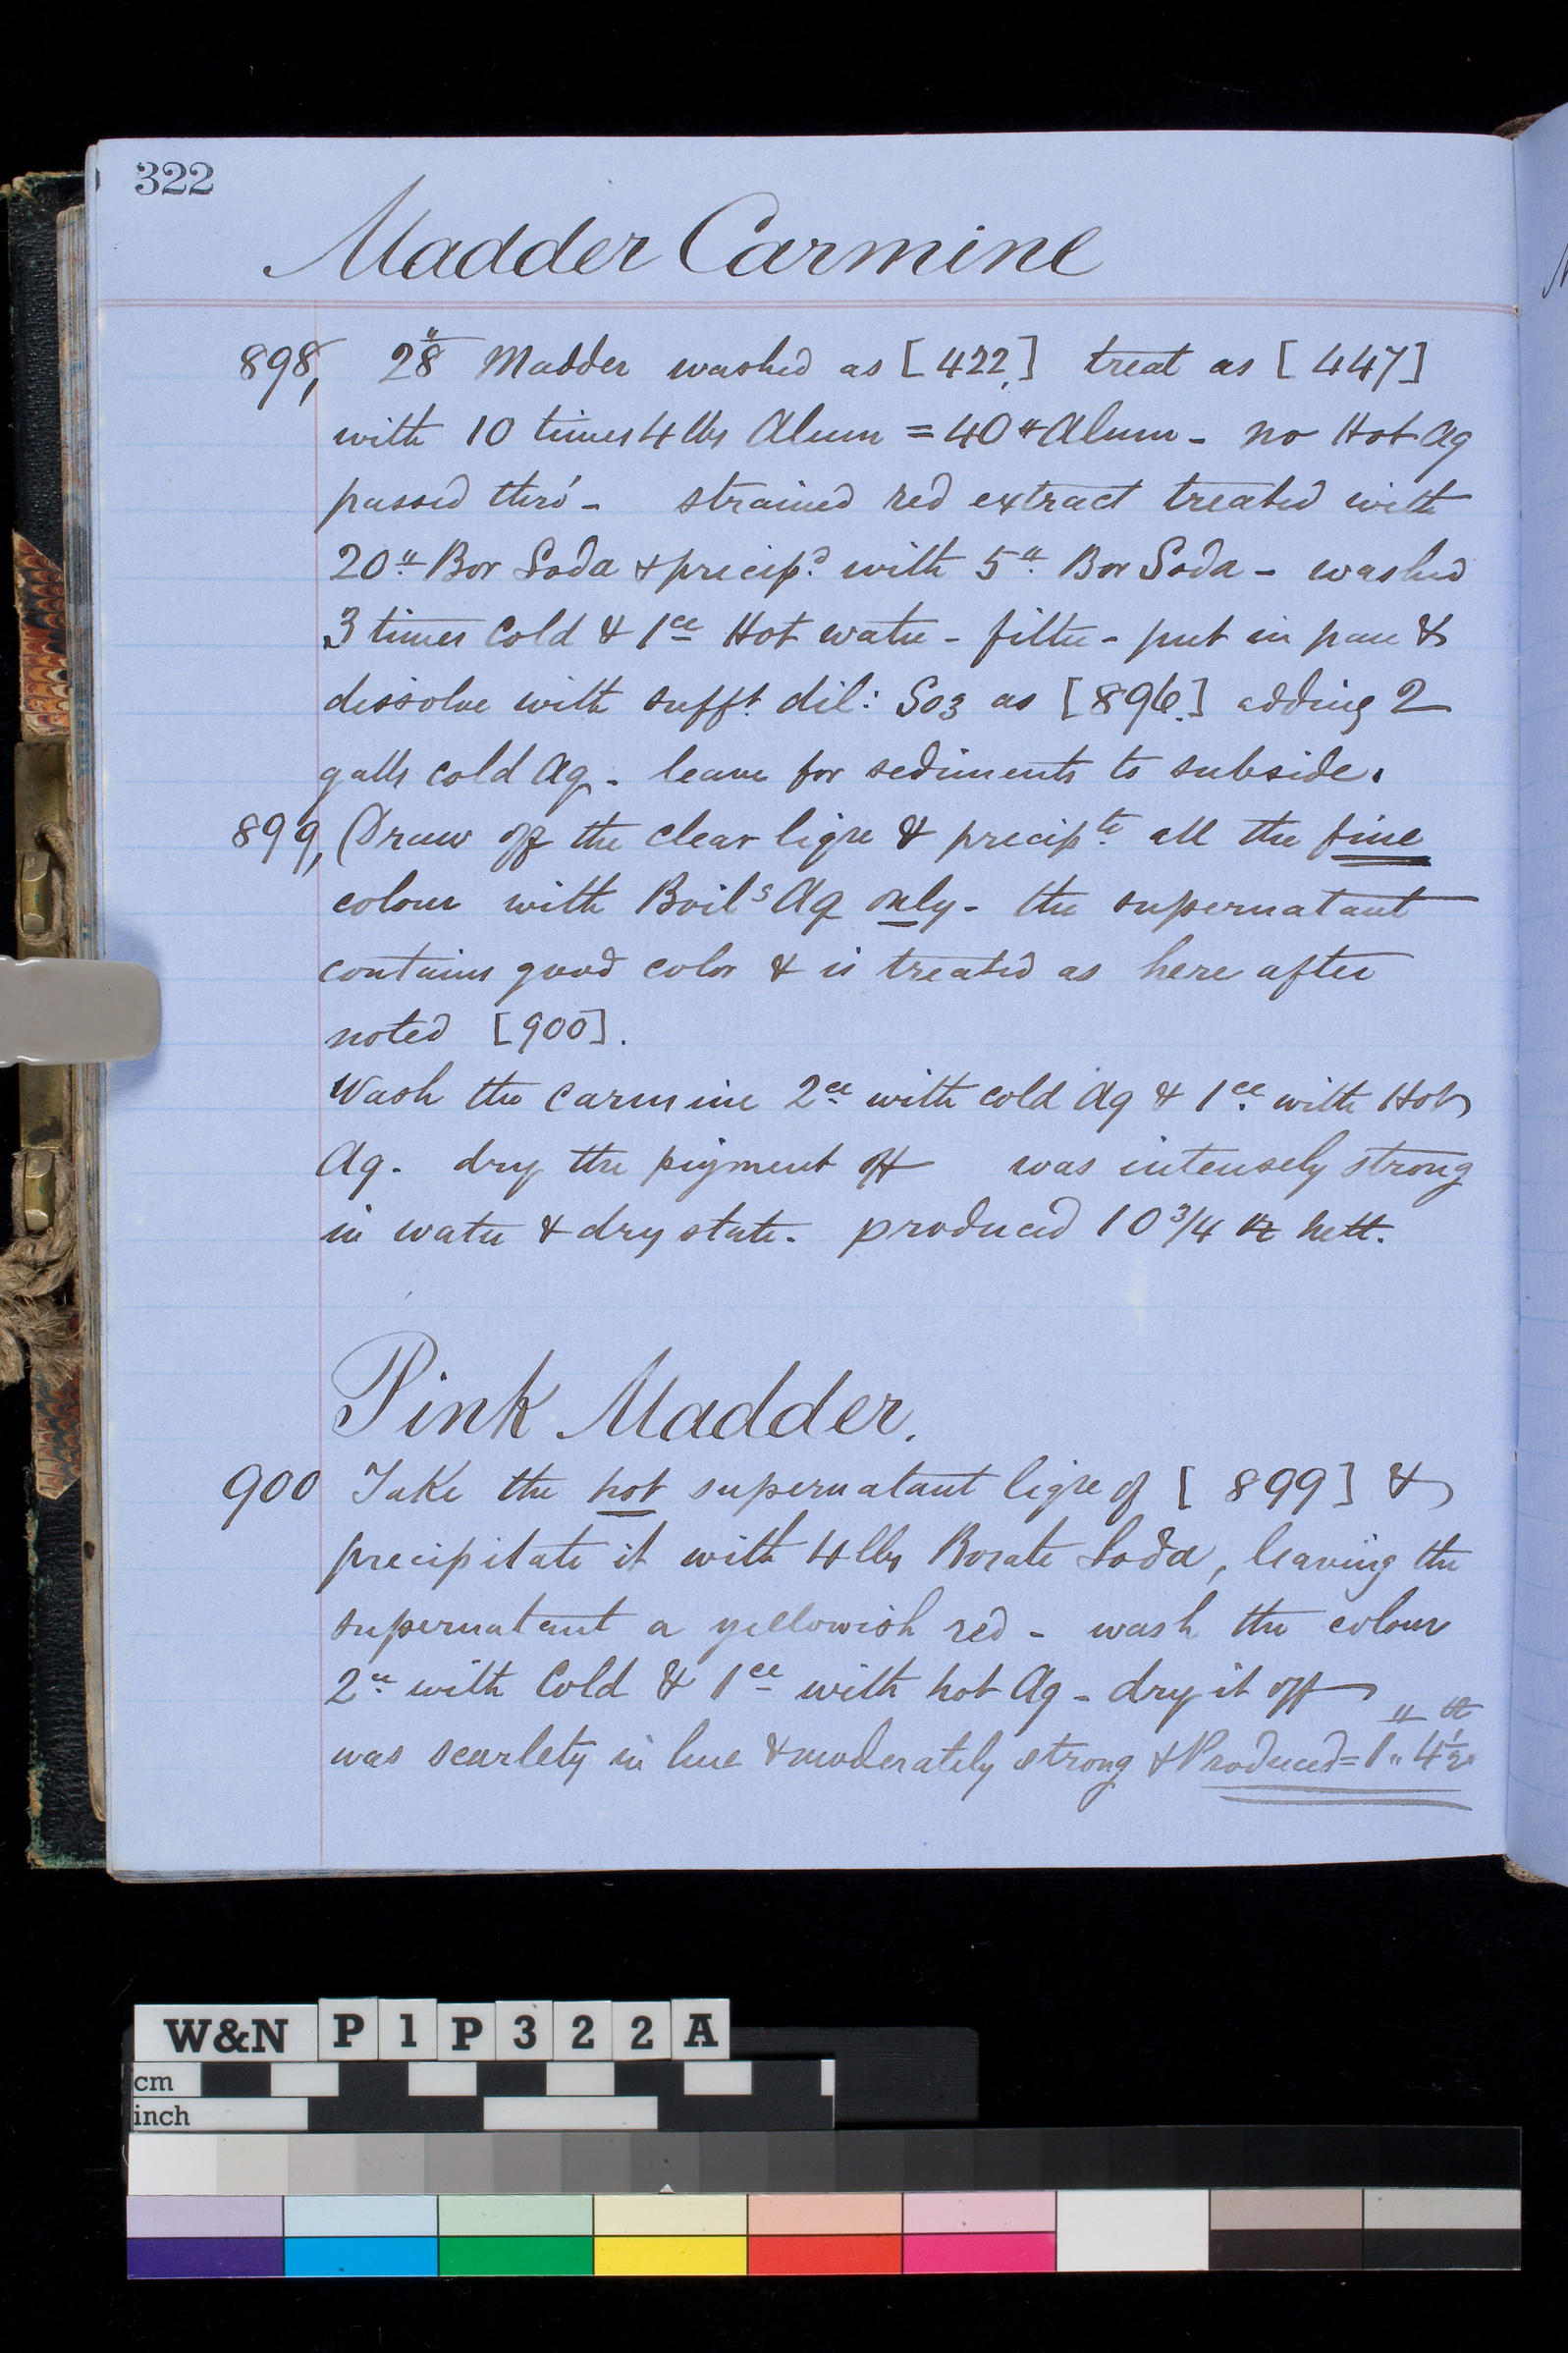 322
Madder Carmine
898, 28" Madder washed as [422.] treat as [447]
with 10 times 4 lbs Alum = 40" Alum - no Hot Aq
passed thro' - strained red extract treated with
20" Bor Soda & precip.d with 5" Bor Soda - washed
3 times Cold & 1ce Hot water - filter - put in pan &
dissolve with sufft. dil: So3 as [896.] adding 2
galls cold Aq. leave for sediments to subside.
899, Draw off the clear liqre & precip.te all the fine
colour with Boilg Aq only - the supernatant
contains good color & is treated as here after
noted [900].
Wash the Carmine 2ce with cold Aq & 1ce with Hot
Aq. dry the pigment off was intensely strong
in water & dry state. produced 10 3/4 oz nett.
Pink Madder.
900 Take the hot supernatant liqre of [899] &
precipitate it with 4 lbs Borate Soda, leaving the
supernatant a yellowish red - wash the colour
2ce with Cold & 1ce with hot Aq - dry it off
was scarlety in hue & moderately strong & Produced = 1" 4 1/2 oz
W&N P1P322A
cm
inch